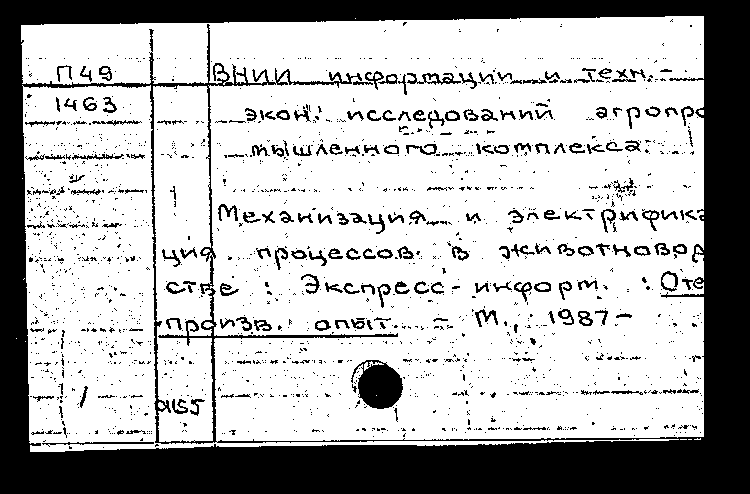 П49
ВНИИ информации и техн.-
1463
экон. исследований агропро
мышленного комплекса.
Механизация и электрифика
ция процессов в животновод
стве : Экспресс-информ. : Оте
произв. опыт. - М., 1987-